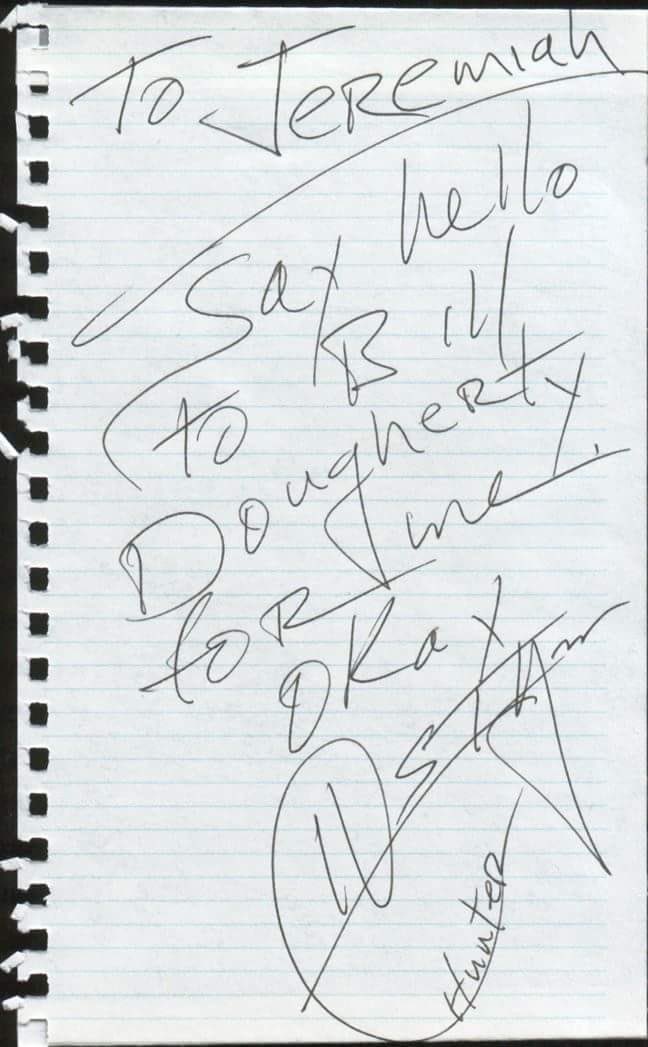 To Jeremiah
Say hello
to Bill
Dougherty
for me,
okay
Hunter